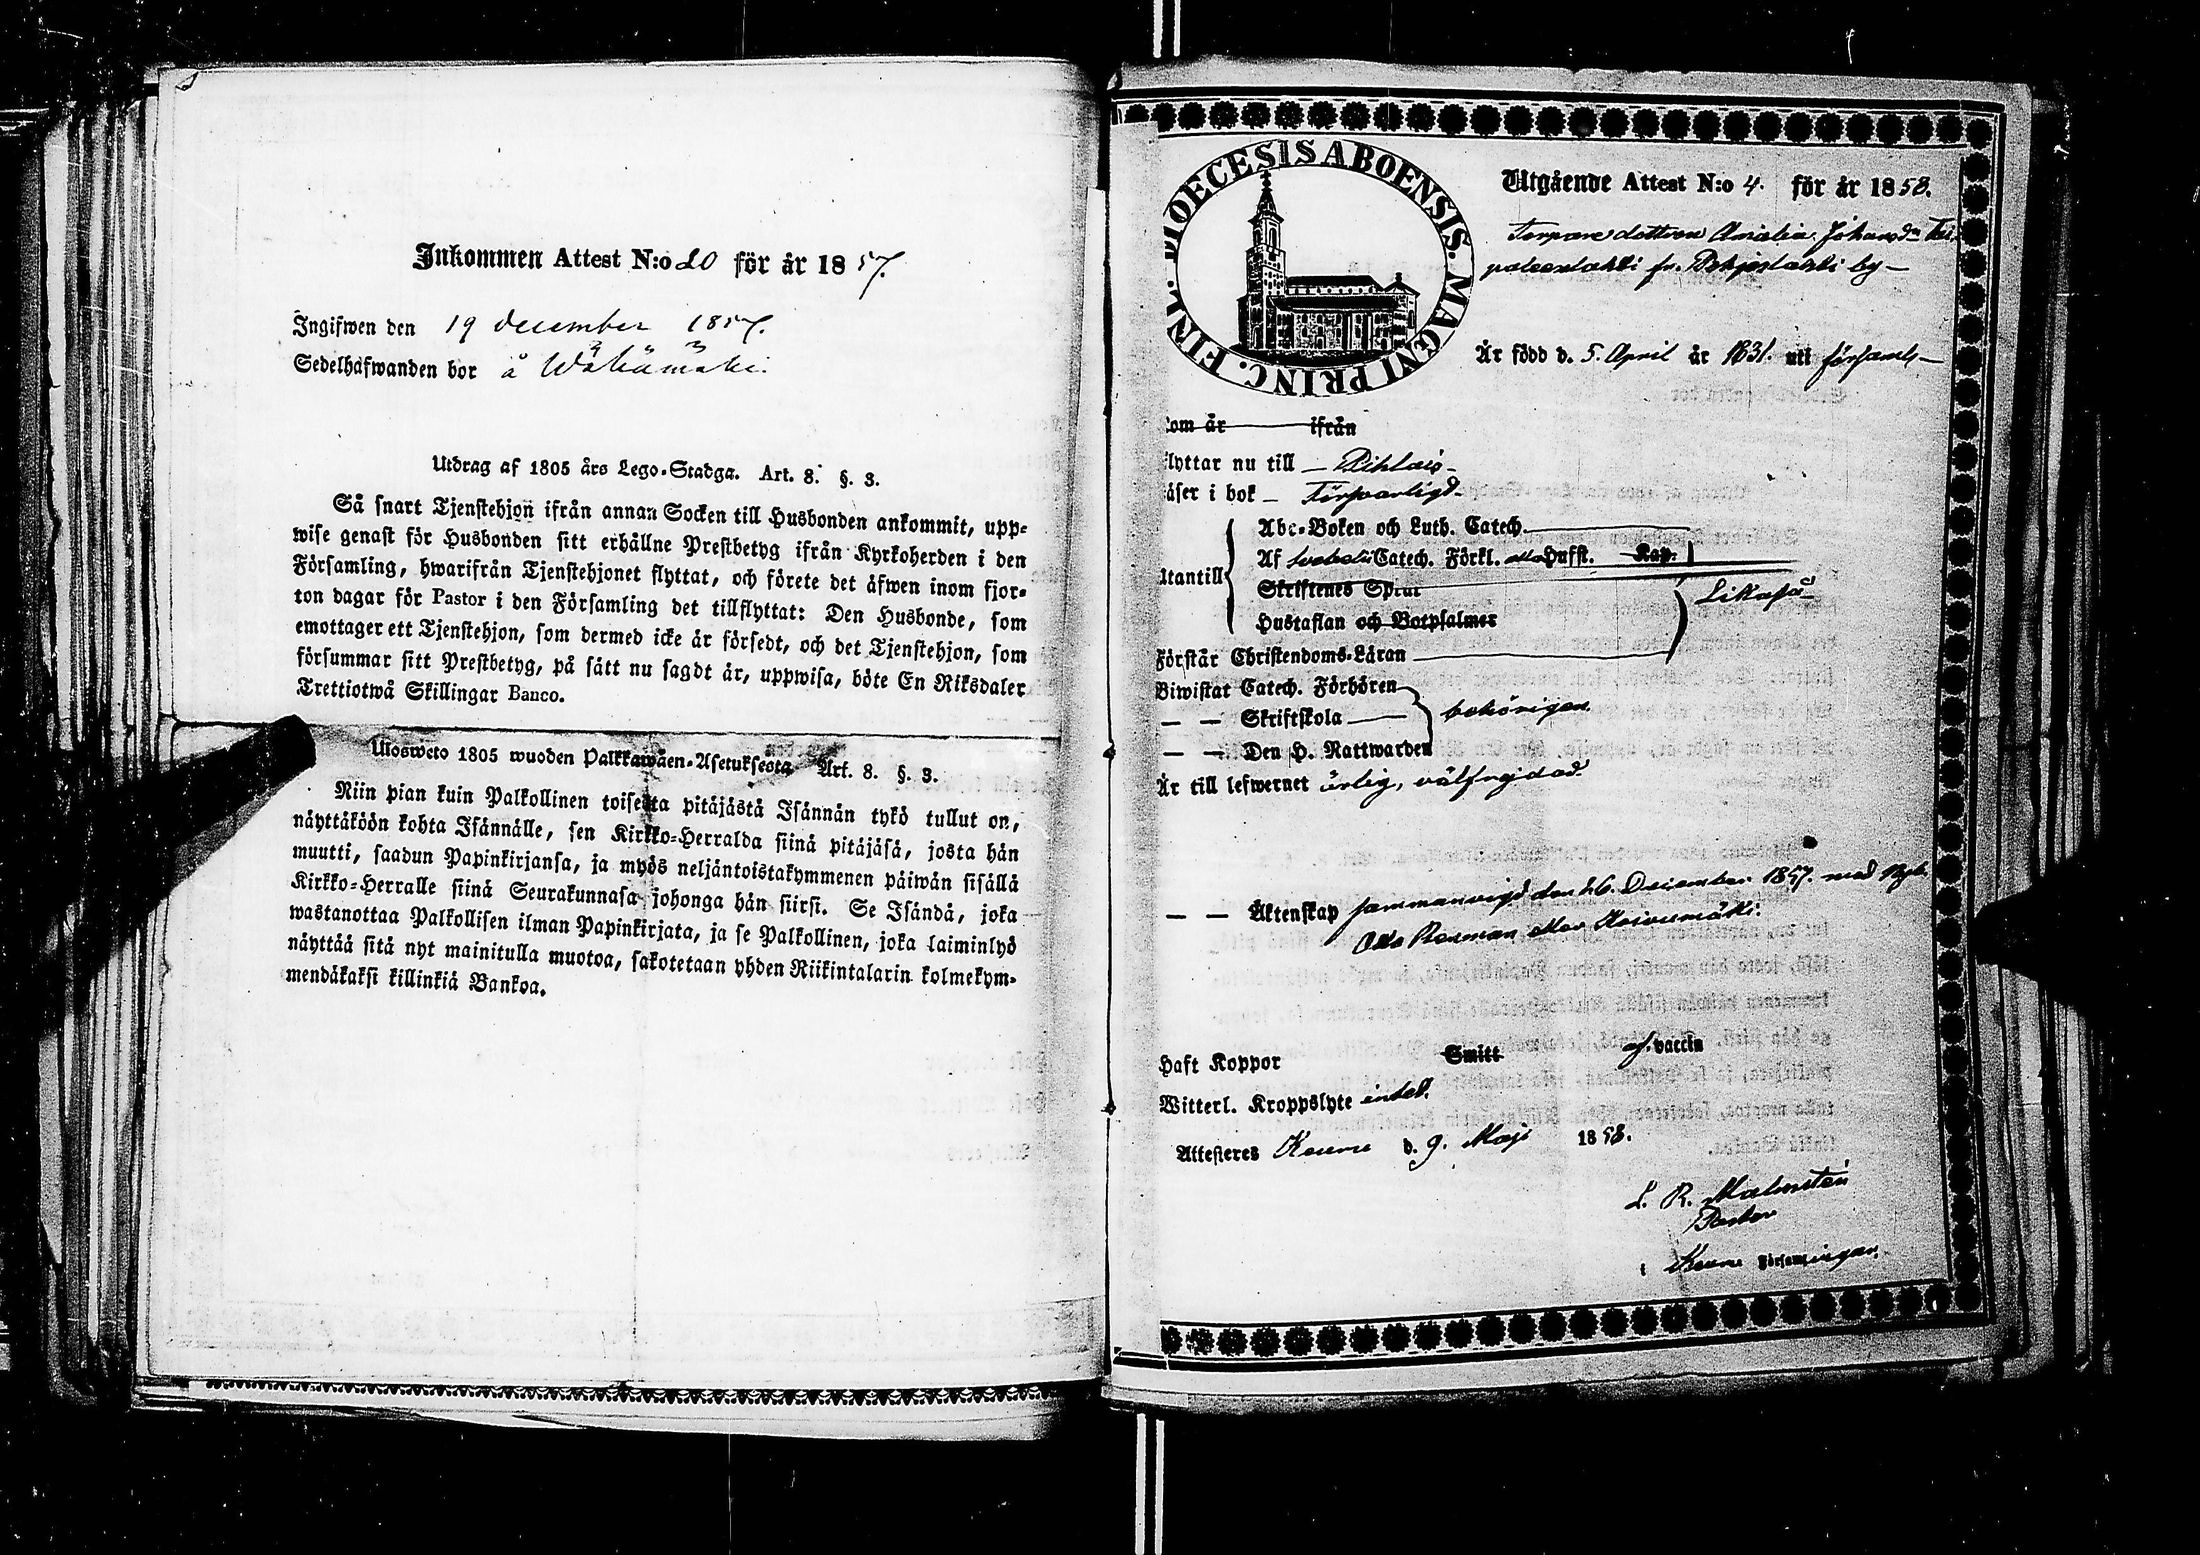 Inkommen Attest N:o 20 för år 1857.
Ingifwen den 19 december 1857.
Sedelhafwanden bor å Wähämäki.
Utdrag af 1805 års Lego-Stadga. Art. 8. §. 3.
Så snart Tjenstehjon ifrån annan Socken till Husbonden ankommit, upp-
wise genast för Husbonden sitt erhållne Prestbetyg ifrån Kyrkoherden i den
Församling, hwarifrån Tjenstehjonet flyttat, och förete det äfwen inom fjor-
ton dagar för Pastor i den Församling det tillflyttat: Den Husbonde, som
emottager ett Tjenstehjon, som dermed icke är försedt, och det Tjenstehjon, som
försummar sitt Prestbetyg, på sätt nu sagdt är, uppwisa, böte En Riksdaler
Trettiotwå Skillingar Banco.
Ulosweto 1805 wuoden Palkkawäen-Asetuksesta Art. 8. §. 3.
Niin pian kuin Palkollinen toisesta pitäjästä Isännän tykö tullut on,
näyttäköön kohta Isännälle, sen Kirkko-Herralda siinä pitäjäsä, josta hän
muutti, saadun Papinkirjansa, ja myös neljäntoistakymmenen päiwän sisällä
Kirkko-Herralle siinä Seurakunnasa johonga hän siirsi. Se Isändä, joka
wastanottaa Palkollisen ilman Papinkirjata, ja se Palkollinen, joka laiminlyö
näyttää sitä nyt mainitulla muotoa, sakotetaan yhden Riikintalarin kolmekym-
mendäkaksi killinkiä Bankoa.
DIOECESIS ABOENSIS. MAGNI PRINC. FINL.
Utgående Attest N:o 4. för år 1858.
Torpare dottren Amalia Johansdr
fr. by
Är född d. 5. April år 1831. uti församl
om år ifrån
lyttar nu till Kihlais
äser i bok Försvarligt
Abc-Boken och Luth. Catech.
Af Svebelii Catech. Förkl. Husst. Kap.
tantill Skriftenes Språk Likaså
Hustaflan och Botpsalmer
Förstår Christendoms-Läran
Biwistat Catech. Förhören
— — Skriftskola behörigen
— — Den H. Nattwarden
Är till lefwernet ärlig, välfrejdad.
— — Äktenskap sammanvigd den 26. December 1857. med
Otto Koivumäki.
Haft Koppor Smitt af vaccin
Witterl. Kroppslyte intet.
Attesteres Keuru d. 9. Maji 1858.
L. R. Malmstén
Pastor
i Keuru Församlingar.